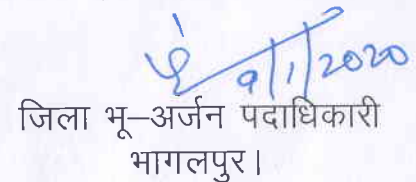 9/1/2020
जिला भू–अर्जन पदाधिकारी
भागलपुर।